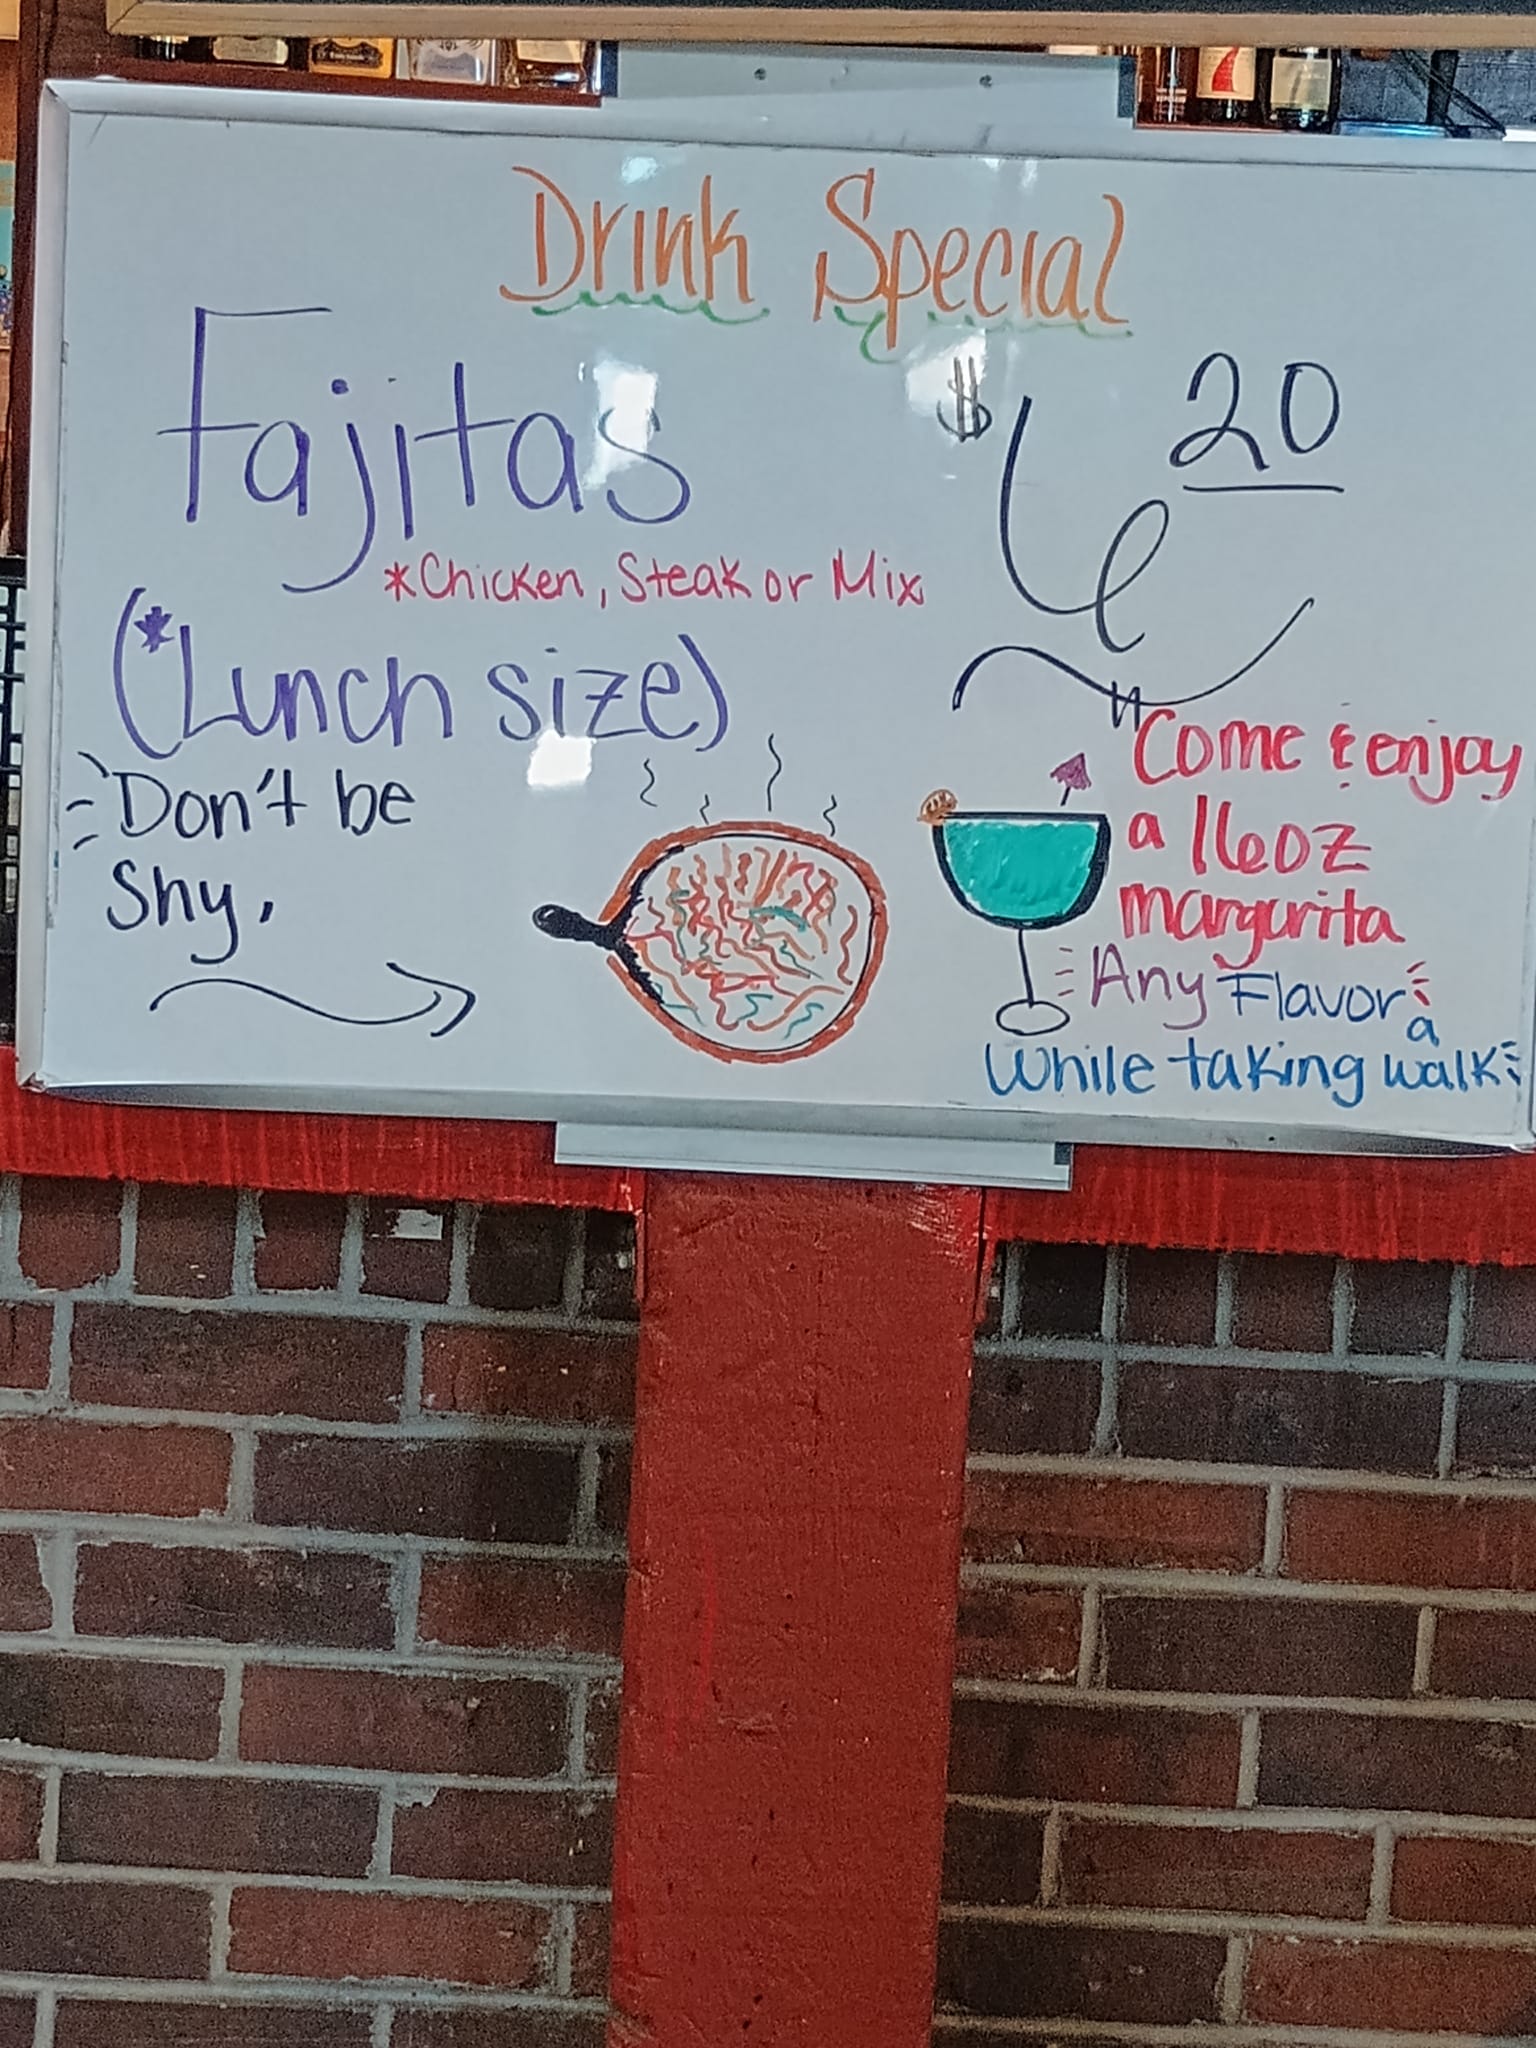 Drink Special
Fajitas
$6 20
*Chicken, Steak or Mix
(*Lunch size)
Don't be
Shy.
"Come & enjoy
a 16oz
margarita
Any Flavor
While taking a walk